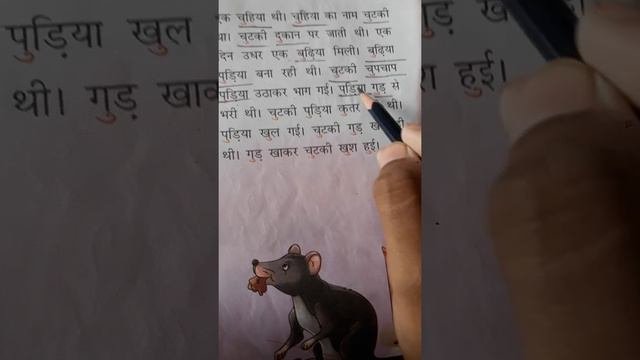 एक चुहिया थी। चुहिया का नाम चुटकी
था। चुटकी दुकान पर जाती थी। एक
दिन उधर एक बुढ़िया मिली। बुढ़िया
पुड़िया बना रही थी। चुटकी चुपचाप
पुड़िया उठाकर भाग गई। पुड़िया गुड़ से
भरी थी। चुटकी पुड़िया कुतर थी।
पुड़िया खुल गई। चुटकी गुड़
थी। गुड़ खाकर चुटकी खुश हुई।